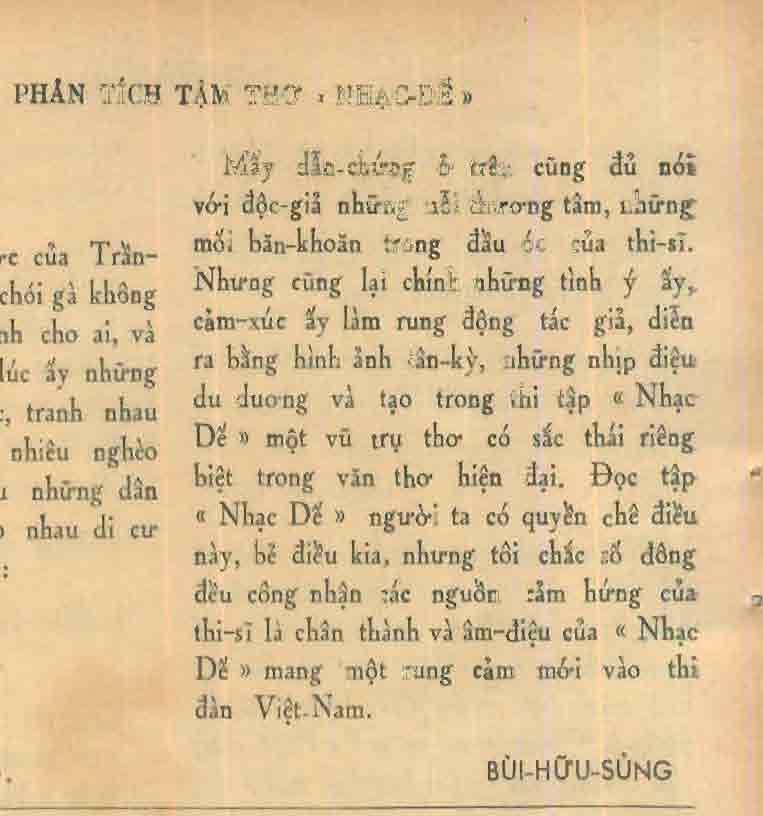 PHÂN TÍCH TẬM THƠ « NHẠC-DẾ »
ức của Trần-
chói gà không
nh cho ai, và
lúc ấy những
c, tranh nhau
nhiêu nghèo
u những dân
o nhau di cư
:
Mấy dẫn-chứng ở trên cũng đủ nói
với độc-giả những nỗi thương tâm, những
mối băn-khoăn trong đầu óc của thi-sĩ.
Nhưng cũng lại chính những tình ý ấy,
cảm-xúc ấy làm rung động tác giả, diễn
ra bằng hình ảnh tân-kỳ, những nhịp điệu
du dương và tạo trong thi tập « Nhạc
Dế » một vũ trụ thơ có sắc thái riêng
biệt trong văn thơ hiện đại. Đọc tập
« Nhạc Dế » người ta có quyền chê điều
này, bẻ điều kia, nhưng tôi chắc số đông
đều công nhận các nguồn cảm hứng của
thi-sĩ là chân thành và âm-điệu của « Nhạc
Dế » mang một rung cảm mới vào thi
đàn Việt-Nam.
BÙI-HỮU-SỦNG